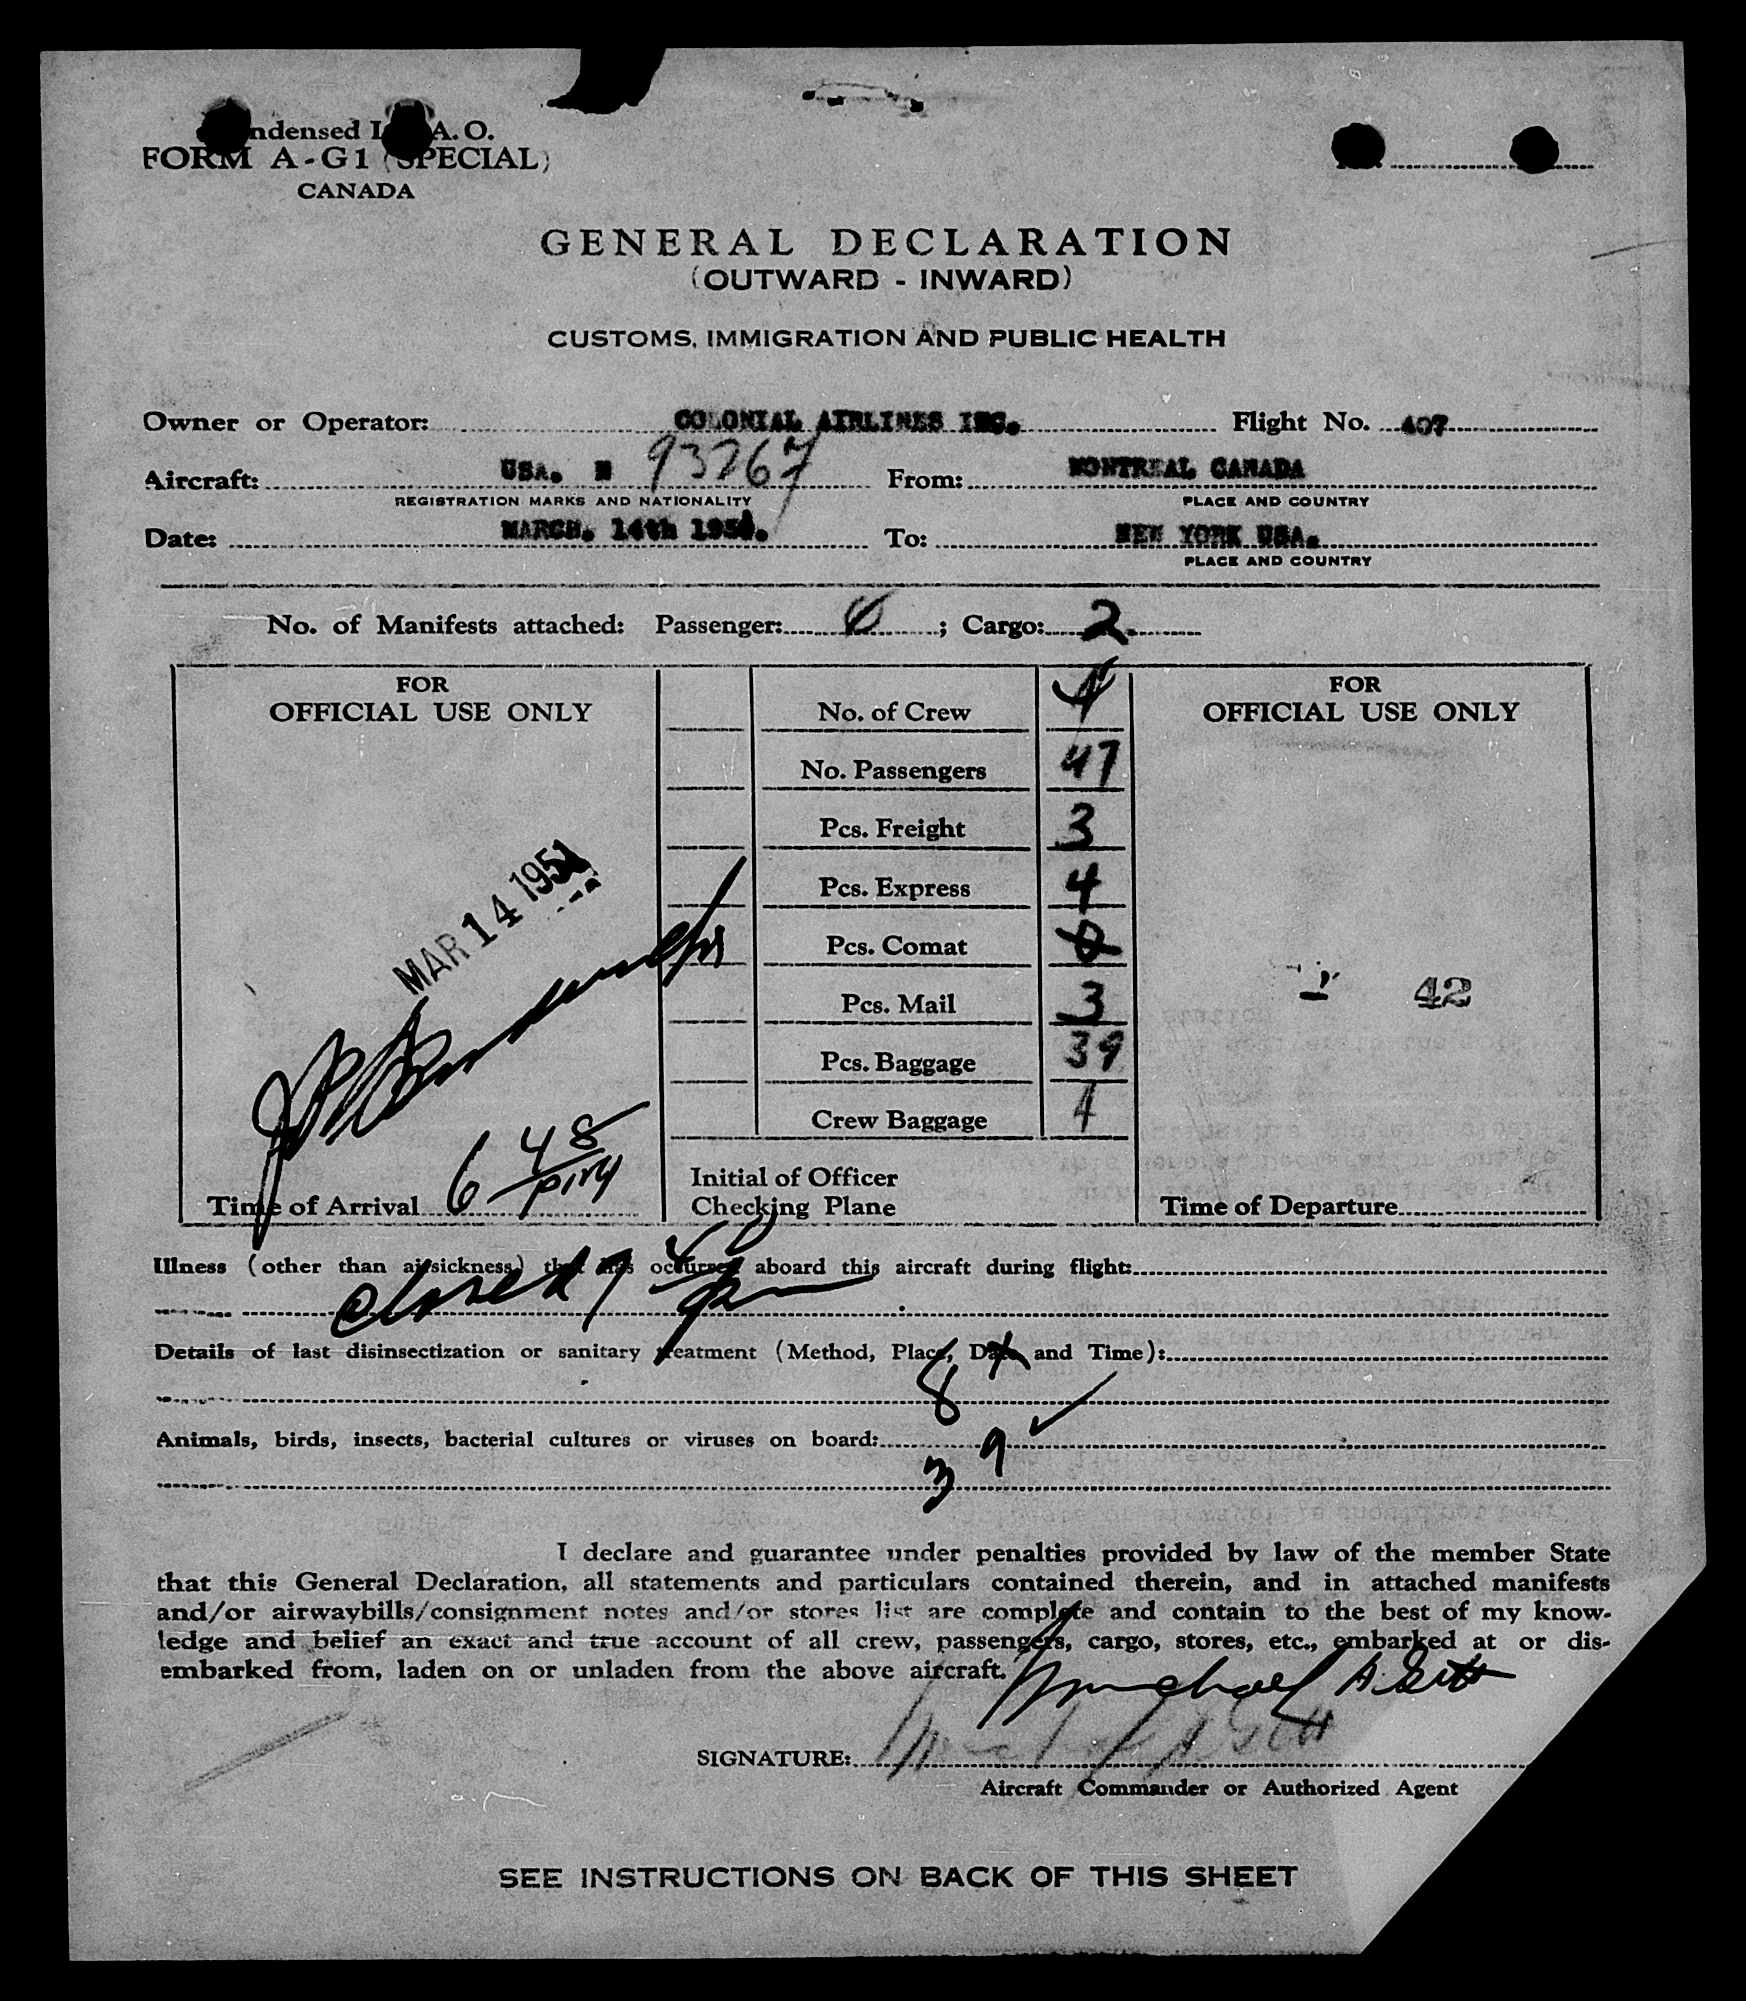 Condensed I.C.A.O.
FORM A-G1 (SPECIAL)
CANADA
No.
GENERAL DECLARATION
(OUTWARD - INWARD)
CUSTOMS, IMMIGRATION AND PUBLIC HEALTH
Owner or Operator: COLONIAL AIRLINES INC. Flight No. 407
Aircraft: USA. N 93267 From: MONTREAL CANADA
REGISTRATION MARKS AND NATIONALITY PLACE AND COUNTRY
Date: MARCH. 14th 195 To: NEW YORK USA.
PLACE AND COUNTRY
No. of Manifests attached: Passenger: ; Cargo: 2
FOR
OFFICIAL USE ONLY
No. of Crew 4
No. Passengers 47
Pcs. Freight 3
Pcs. Express 4
Pcs. Comat 0
Pcs. Mail 3
Pcs. Baggage 39
Crew Baggage 4
FOR
OFFICIAL USE ONLY
MAR 14 195
42
Time of Arrival 6 48 pm
Initial of Officer
Checking Plane
Time of Departure
Illness (other than airsickness) that has occurred aboard this aircraft during flight:
closed 7 40 pm
Details of last disinsectization or sanitary treatment (Method, Place, Date and Time):
8
Animals, birds, insects, bacterial cultures or viruses on board: 9
3
I declare and guarantee under penalties provided by law of the member State
that this General Declaration, all statements and particulars contained therein, and in attached manifests
and/or airwaybills/consignment notes and/or stores list are complete and contain to the best of my know-
ledge and belief an exact and true account of all crew, passengers, cargo, stores, etc., embarked at or dis-
embarked from, laden on or unladen from the above aircraft.
Michael A.
SIGNATURE:
Aircraft Commander or Authorized Agent
SEE INSTRUCTIONS ON BACK OF THIS SHEET